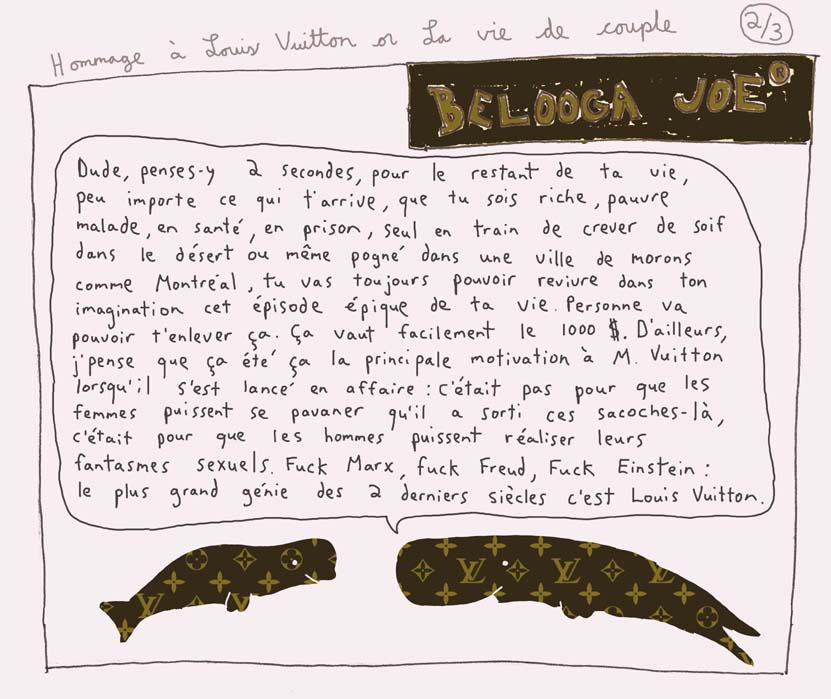 Hommage à Louis Vuitton or La vie de couple
2/3
BELOOGA JOE®
Dude, penses-y 2 secondes, pour le restant de ta vie,
peu importe ce qui t'arrive, que tu sois riche, pauvre
malade, en santé, en prison, seul en train de crever de soif
dans le désert ou même pogné dans une ville de morons
comme Montréal, tu vas toujours pouvoir revivre dans ton
imagination cet épisode épique de ta vie. Personne va
pouvoir t'enlever ça. Ça vaut facilement le 1000 $. D'ailleurs,
j'pense que ça été ça la principale motivation à M. Vuitton
lorsqu'il s'est lancé en affaire : c'était pas pour que les
femmes puissent se pavaner qu'il a sorti ces sacoches-là,
c'était pour que les hommes puissent réaliser leurs
fantasmes sexuels. Fuck Marx, fuck Freud, Fuck Einstein :
le plus grand génie des 2 derniers siècles c'est Louis Vuitton.
LV
LV LV LV
LV